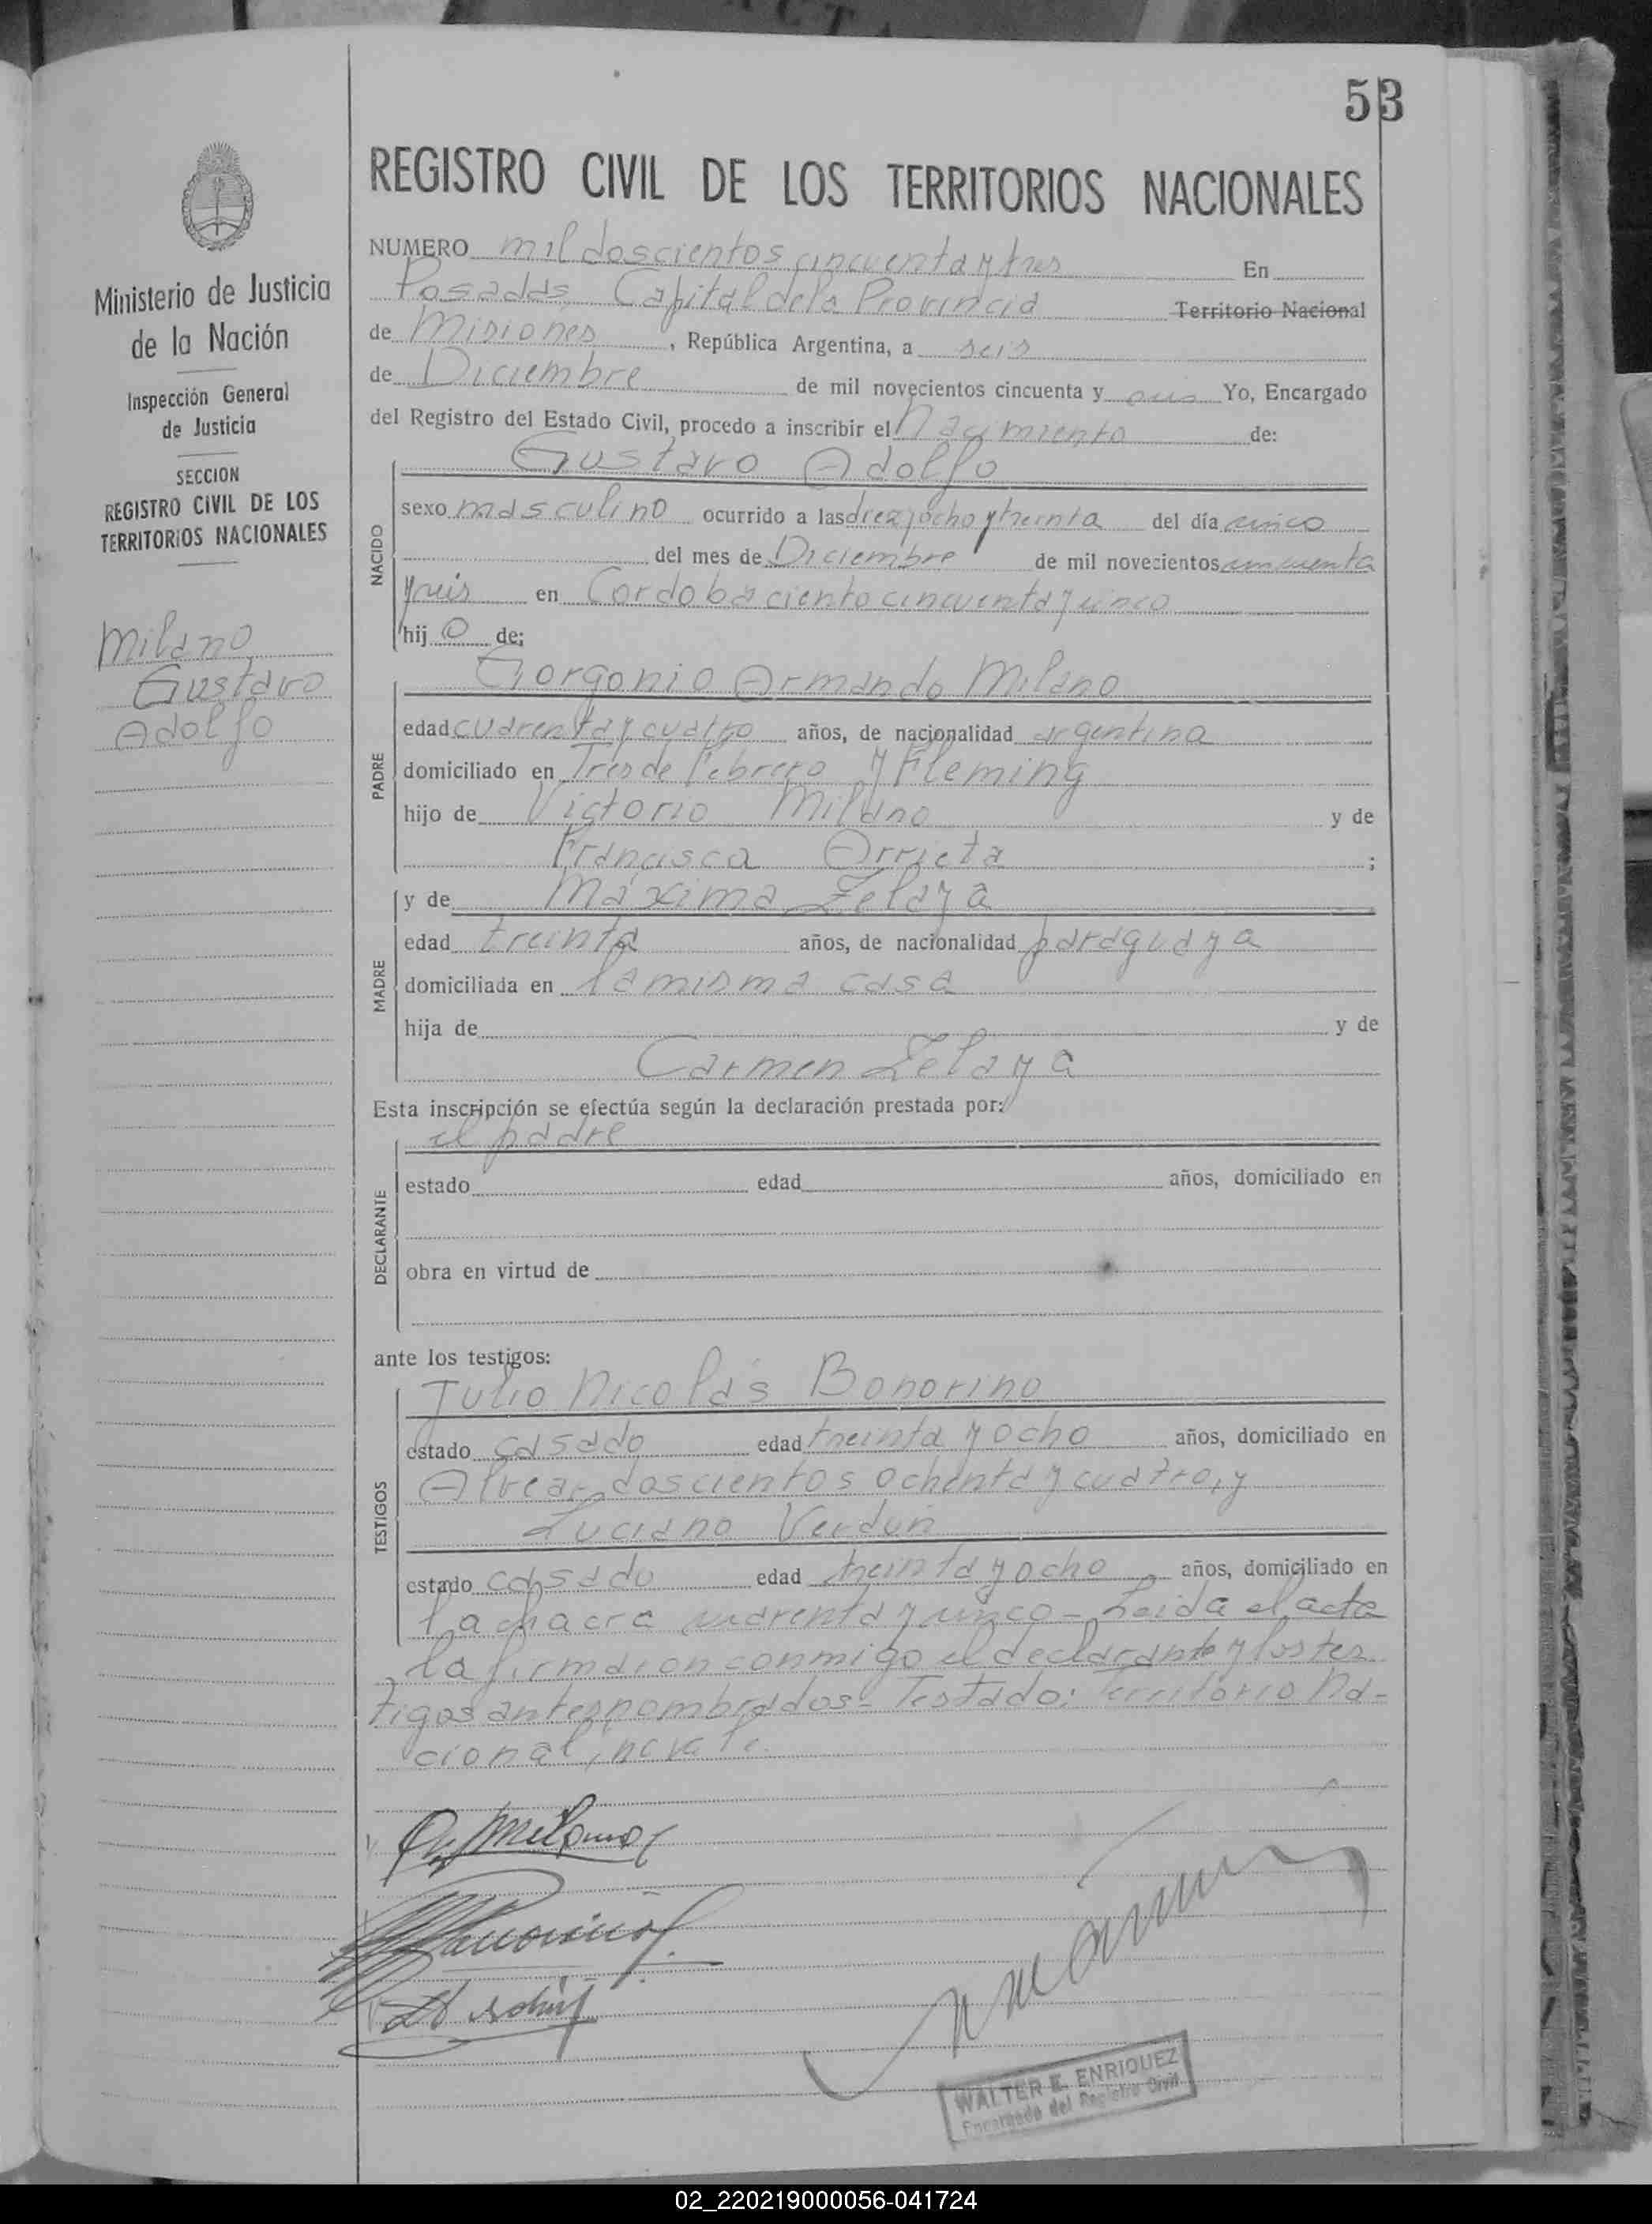 53
REGISTRO CIVIL DE LOS TERRITORIOS NACIONALES
NUMERO mil doscientos cincuenta y tres En
Posadas, Capital de la Provincia Territorio Nacional
de Misiones, República Argentina, a seis
de Diciembre de mil novecientos cincuenta y seis Yo, Encargado
del Registro del Estado Civil, procedo a inscribir el Nacimiento de:
Gustavo Adolfo
NACIDO
sexo masculino ocurrido a las diez y ocho y treinta del día cinco
del mes de Diciembre de mil novecientos cincuenta
y seis en Cordoba ciento cincuenta y cinco
hij o de:
Gorgonio Armando Milano
PADRE
edad cuarenta y cuatro años, de nacionalidad argentina
domiciliado en Tres de Febrero y Fleming
hijo de Victorio Milano y de
Francisca Arrieta ;
MADRE
y de Máxima Zelaya
edad treinta años, de nacionalidad paraguaya
domiciliada en la misma casa
hija de y de
Carmen Zelaya
Esta inscripción se efectúa según la declaración prestada por:
el padre
DECLARANTE
estado edad años, domiciliado en
obra en virtud de
ante los testigos:
Julio Nicolás Bonorino
TESTIGOS
estado casado edad treinta y ocho años, domiciliado en
Alvear doscientos ochenta y cuatro, y
Luciano Verdún
estado casado edad treinta y ocho años, domiciliado en
la chacra cuarenta y cinco - Leida el acta
la firmaron conmigo el declarante y los tes
tigos antes nombrados - Testado: Territorio Na-
cional, no vale.
WALTER E. ENRIQUEZ
Encargado del Registro Civil
Ministerio de Justicia
de la Nación
Inspección General
de Justicia
SECCION
REGISTRO CIVIL DE LOS
TERRITORIOS NACIONALES
Milano
Gustavo
Adolfo
02_220219000056-041724